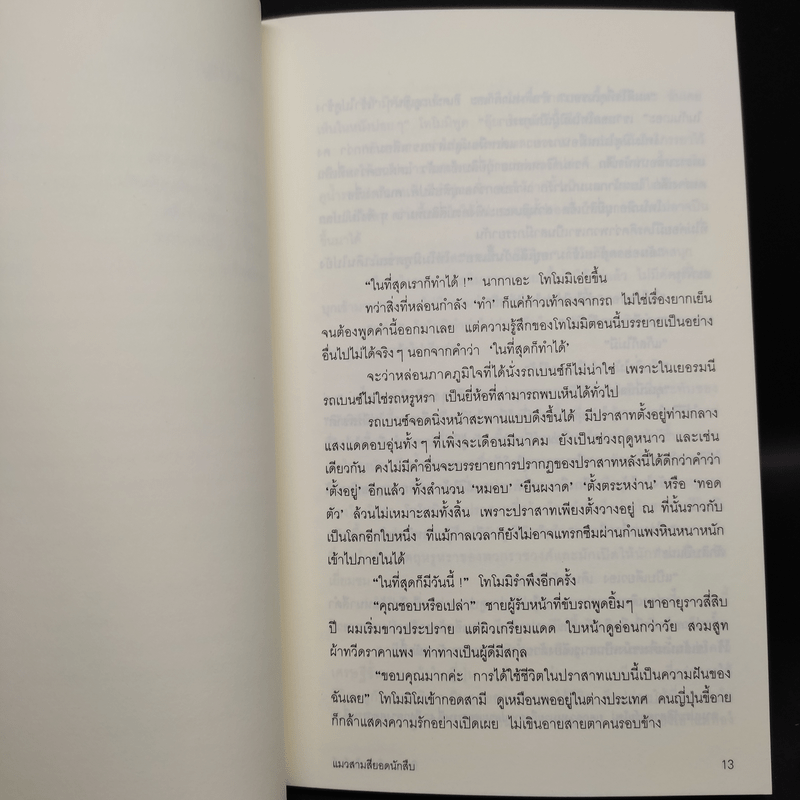 “ในที่สุดเราก็ทำได้ !” นากาเอะ โทโมมิเอ่ยขึ้น
ทว่าสิ่งที่หล่อนกำลัง ‘ทำ’ ก็แค่ก้าวเท้าลงจากรถ ไม่ใช่เรื่องยากเย็น
จนต้องพูดคำนี้ออกมาเลย แต่ความรู้สึกของโทโมมิตอนนี้บรรยายเป็นอย่าง
อื่นไปไม่ได้จริงๆ นอกจากคำว่า ‘ในที่สุดก็ทำได้’
จะว่าหล่อนภาคภูมิใจที่ได้นั่งรถเบนซ์ก็ไม่น่าใช่ เพราะในเยอรมนี
รถเบนซ์ไม่ใช่รถหรูหรา เป็นยี่ห้อที่สามารถพบเห็นได้ทั่วไป
รถเบนซ์จอดนิ่งหน้าสะพานแบบดึงขึ้นได้ มีปราสาทตั้งอยู่ท่ามกลาง
แสงแดดอบอุ่นทั้งๆ ที่เพิ่งจะเดือนมีนาคม ยังเป็นช่วงฤดูหนาว และเช่น
เดียวกัน คงไม่มีคำอื่นจะบรรยายการปรากฏของปราสาทหลังนี้ได้ดีกว่าคำว่า
‘ตั้งอยู่’ อีกแล้ว ทั้งสำนวน ‘หมอบ’ ‘ยืนผงาด’ ‘ตั้งตระหง่าน’ หรือ ‘ทอด
ตัว’ ล้วนไม่เหมาะสมทั้งสิ้น เพราะปราสาทเพียงตั้งวางอยู่ ณ ที่นั้นราวกับ
เป็นโลกอีกใบหนึ่ง ที่แม้กาลเวลาก็ยังไม่อาจแทรกซึมผ่านกำแพงหินหนาหนัก
เข้าไปภายในได้
“ในที่สุดก็มีวันนี้ !” โทโมมิรำพึงอีกครั้ง
“คุณชอบหรือเปล่า” ชายผู้รับหน้าที่ขับรถพูดยิ้มๆ เขาอายุราวสี่สิบ
ปี ผมเริ่มขาวประปราย แต่ผิวเกรียมแดด ใบหน้าดูอ่อนกว่าวัย สวมสูท
ผ้าทวีดราคาแพง ท่าทางเป็นผู้ดีมีสกุล
“ขอบคุณมากค่ะ การได้ใช้ชีวิตในปราสาทแบบนี้เป็นความฝันของ
ฉันเลย” โทโมมิโผเข้ากอดสามี ดูเหมือนพออยู่ในต่างประเทศ คนญี่ปุ่นขี้อาย
ก็กล้าแสดงความรักอย่างเปิดเผย ไม่เขินอายสายตาคนรอบข้าง
แมวสามสียอดนักสืบ 13